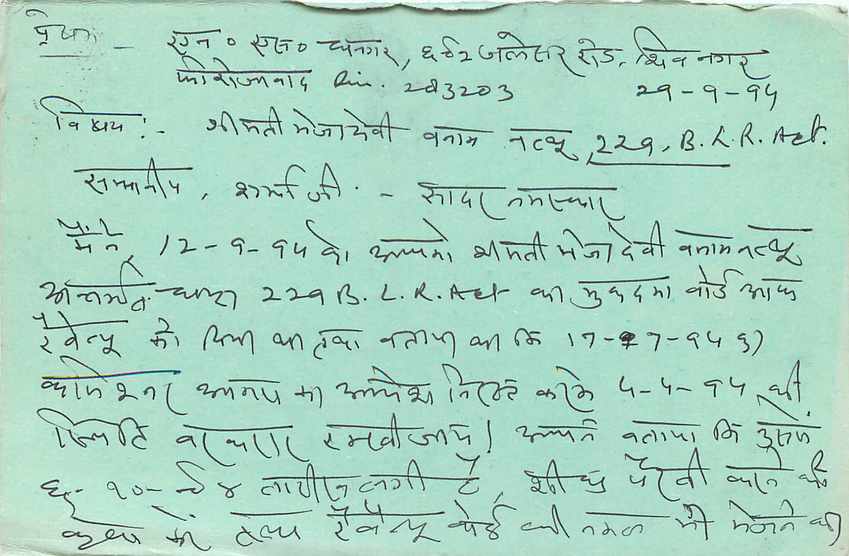 प्रेषक: - एन० एस० धनगर, ६४२ जलेसर रोड, शिव नगर
फीरोजाबाद Pin. 283203 29-9-94
विषय:- श्रीमती मेजादेवी बनाम नत्थू, 229, B. L. R. Act.
सम्मानीय, शर्मा जी - सादर नमस्कार
मैंने, 12-9-94 को आपको श्रीमती मेजादेवी बनाम नत्थू
अन्तर्गत धारा 229 B. L. R. Act का मुकदमा बोर्ड आफ
रैवेन्यू को दिया था तथा बताया था कि 17-7-94 को
कमिश्नर आगरा का आदेश निरस्त करके 4-4-94 की
स्थिति बरकरार रखी जाय। आपने बताया कि उसमें
तारीख लगी है, शीघ्र पैरवी करने की
कृपा करें तथा रैवेन्यू बोर्ड की नकल भी भेजने की